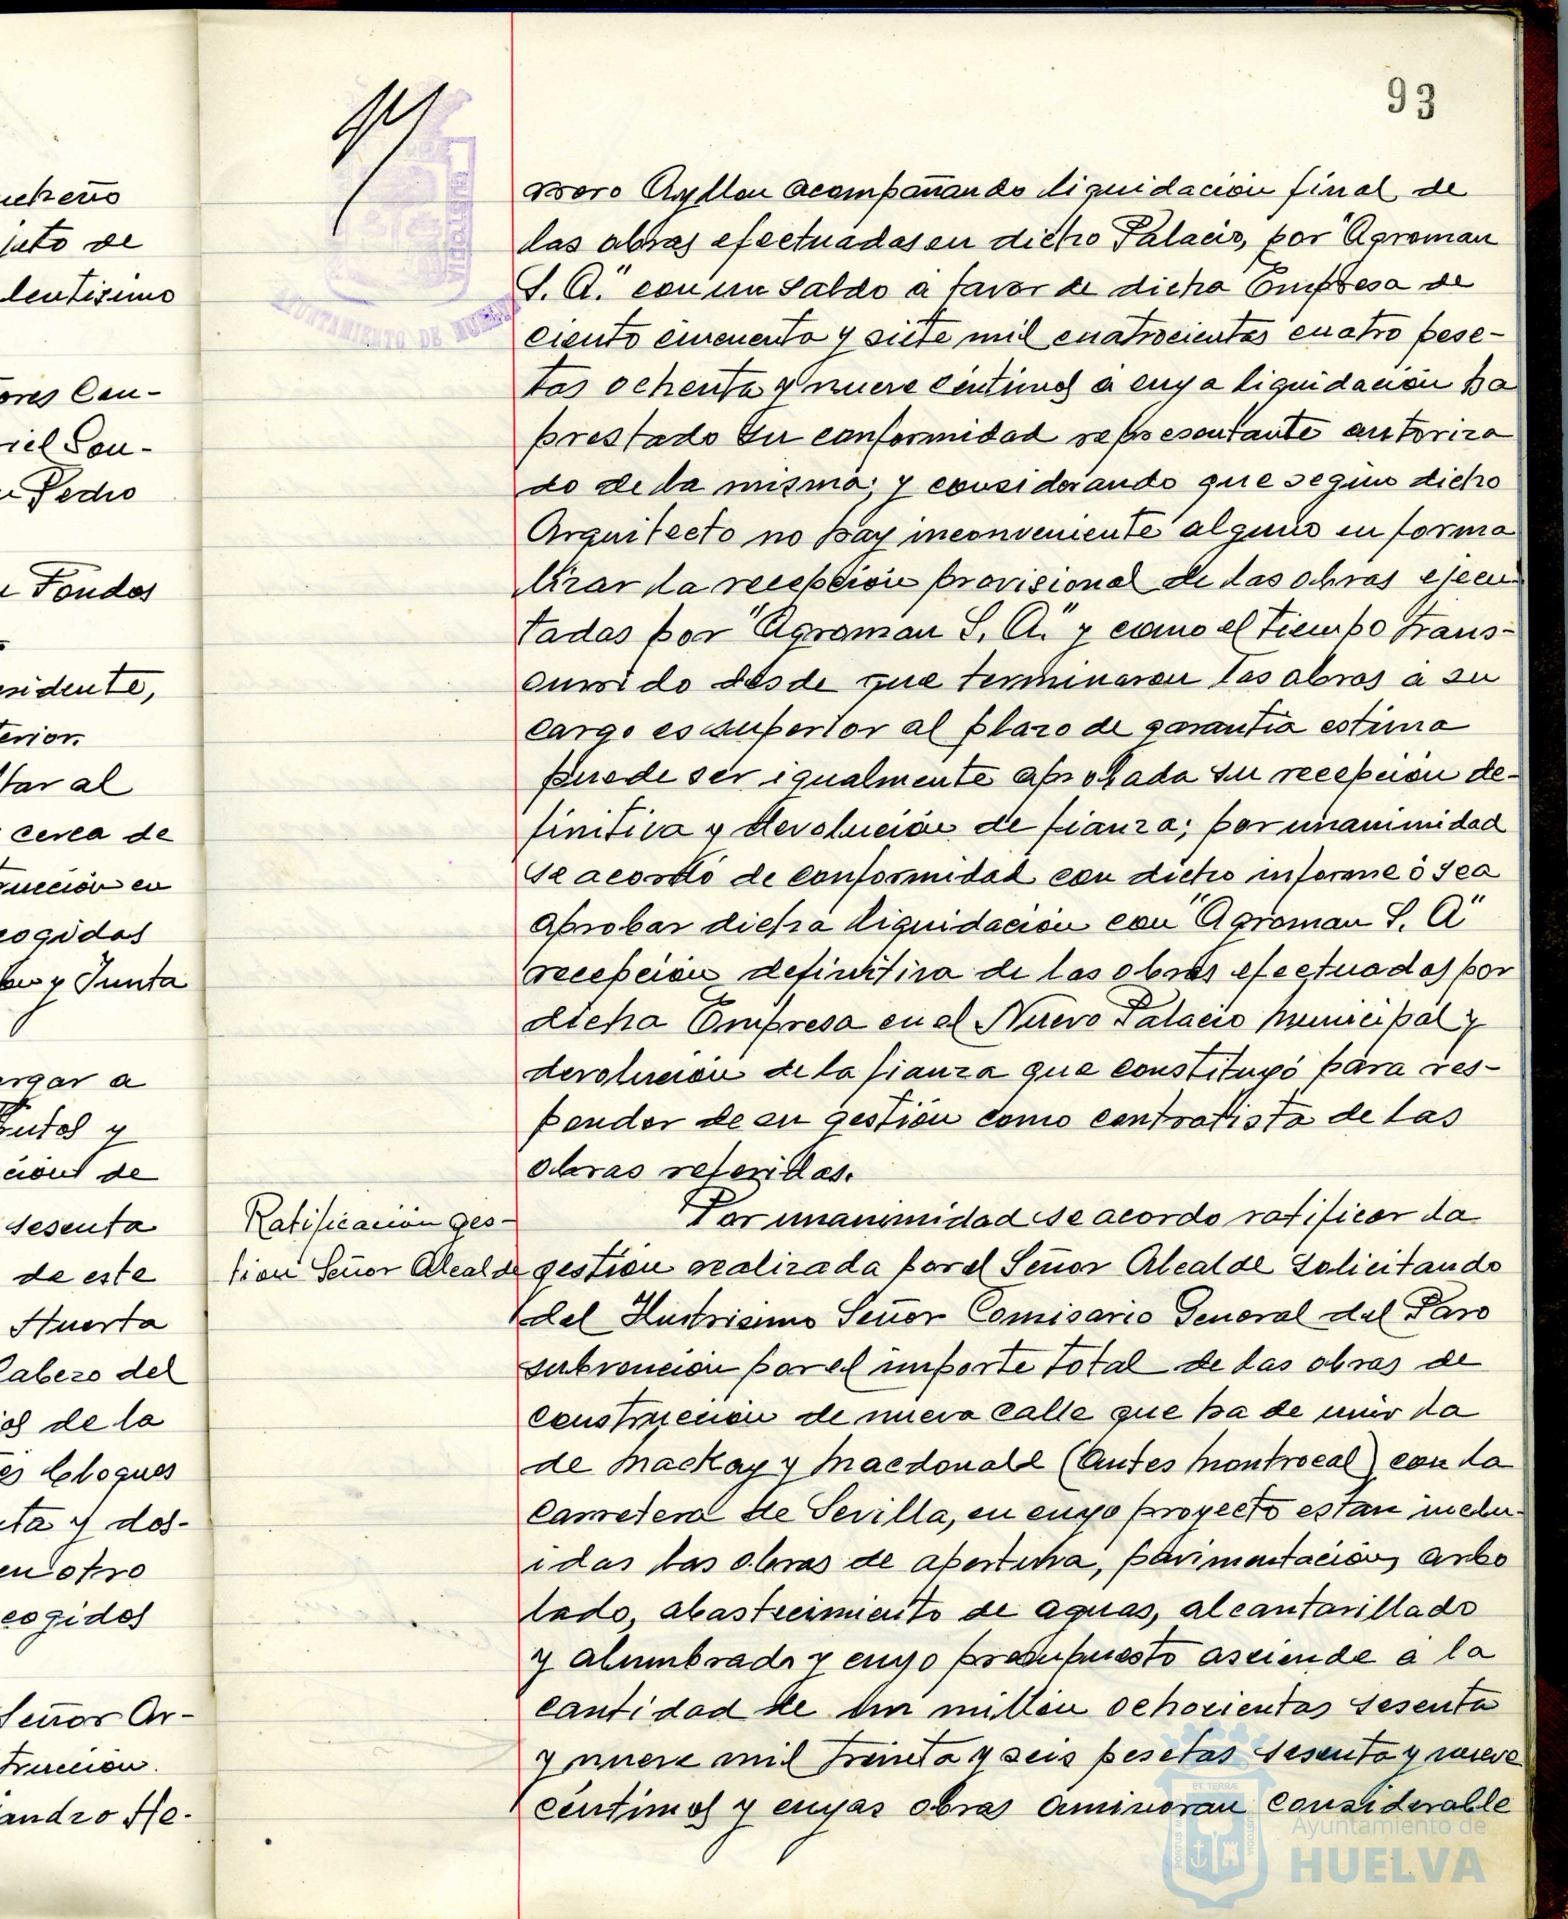 93
ucheño
juto de
lentísimo
ores Con-
riel Son-
Pedro
Fondos
esidente,
erior.
tar al
cerca de
rucción en
cogidas
y Junta
argar a
y
de
sesenta
de este
Huerta
Cabezo del
de la
bloques
ta y dos-
en otro
cogidos
Señor Ar-
trucción.
andro He-
Ratificación ges-
tion Señor Alcalde
AYUNTAMIENTO DE HUELVA
moro Ayllon acompañando liquidación final de
las obras efectuadas en dicho Palacio, por "Agroman
S. A." con un saldo a favor de dicha Empresa de
ciento cincuenta y siete mil cuatrocientas cuatro pese-
tas ochenta y nueve céntimos a cuya liquidación ha
prestado su conformidad representante autoriza
do de la misma; y considerando que segun dicho
Arquitecto no hay inconveniente alguno en forma
lizar la recepción provisional de las obras ejecu
tadas por "Agroman S. A." y como el tiempo trans-
currido desde que terminaron las obras a su
cargo es superior al plazo de garantía estima
puede ser igualmente aprobada su recepción de-
finitiva y devolución de fianza; por unanimidad
se acordó de conformidad con dicho informe ó sea
aprobar dicha liquidación con "Agroman S. A"
recepción definitiva de las obras efectuadas por
dicha Empresa en el Nuevo Palacio Municipal y
devolución de la fianza que constituyó para res-
ponder de su gestión como contratista de las
obras referidas.
Por unanimidad se acordo ratificar la
gestión realizada por el Señor Alcalde solicitando
del Ilustrísimo Señor Comisario General del Paro
subvención por el importe total de las obras de
construcción de nueva calle que ha de unir la
de Mackay y Macdonald (antes Montrocal) con la
Carretera de Sevilla, en cuyo proyecto estan inclu-
idas las obras de apertura, pavimentación, arbo
lado, abastecimiento de aguas, alcantarillado
y alumbrado y cuyo presupuesto asciende a la
cantidad de un millón ochocientas sesenta
y nueve mil treinta y seis pesetas sesenta y nueve
céntimos y cuyas obras aminoran considerable
Ayuntamiento de
HUELVA